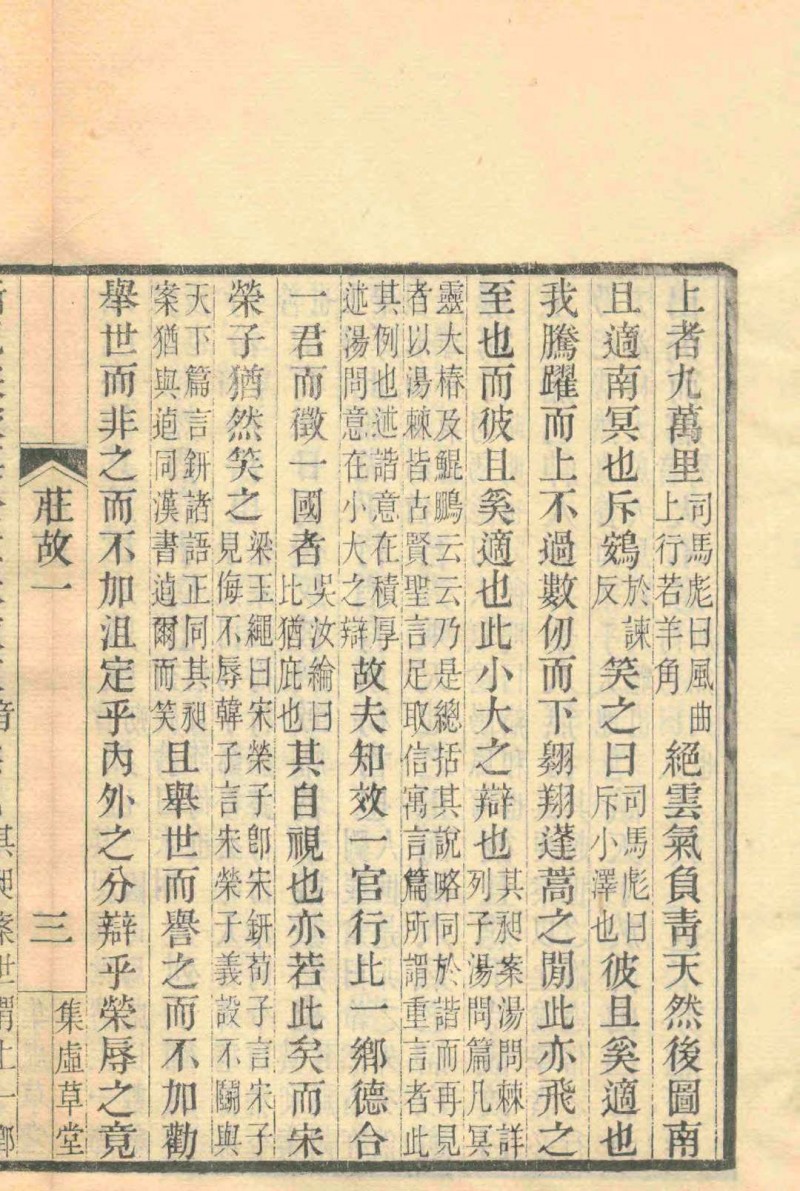 上者九萬里司馬彪曰風曲上行若羊角絕雲氣負靑天然後圖南
且適南冥也斥鴳於諫反笑之曰司馬彪曰斥小澤也彼且奚適也
我騰躍而上不過數仞而下翱翔蓬蒿之閒此亦飛之
至也而彼且奚適也此小大之辯也其昶案湯問棘詳列子湯問篇凡冥
靈大椿及鯤鵬云云乃是總括其說略同於諧而再見者以湯棘皆古賢聖言足取信寓言篇所謂重言者此
其例也述諧意在積厚述湯問意在小大之辯故夫知效一官行比一鄉德合
一君而徵一國者吳汝綸曰比猶庇也其自視也亦若此矣而宋
榮子猶然笑之梁玉繩曰宋榮子卽宋鈃荀子言宋子見侮不辱韓子言宋榮子義設不鬭與
天下篇言鈃諸語正同其昶案猶與逌同漢書逌爾而笑且舉世而譽之而不加勸
舉世而非之而不加沮定乎內外之分辯乎榮辱之竟
莊故一
三
集虛草堂